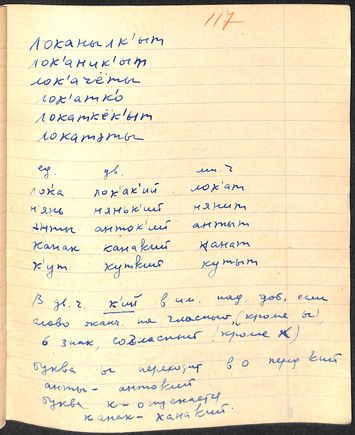 117
локанылк'ыт
лок'аник'ыт
лок'ачёты
лок'атко́
локаткёк'ыт
локатэты
ед. дв. мн. ч
лока лок'ак'ий лок'ат
н'янь няньк'ий нянит
анты анток'ий антыт
канак канакий канат
к'ут куткий кутыт
В дв. ч. к'ий в им. пад доб, если
слово оканч. на гласный (кроме ы)
ь знак, согласный (кроме к)
буква ы переходит в о перед кий
анты - антокий
буква к - опускается
канак - канакий.